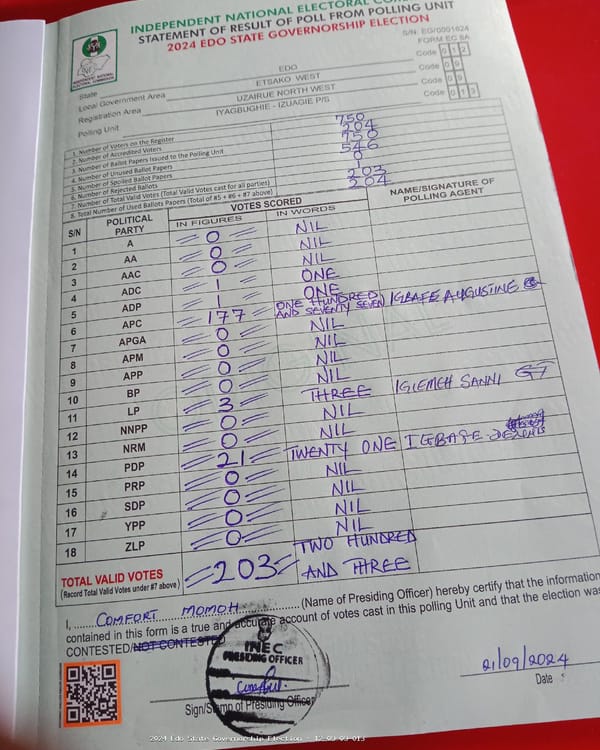 INDEPENDENT NATIONAL ELECTORAL
STATEMENT OF RESULT OF POLL FROM POLLING UNIT
2024 EDO STATE GOVERNORSHIP ELECTION
S/N: EG/0001624
FORM EC 8A
State EDO Code 012
Local Government Area ETSAKO WEST Code 09
Registration Area UZAIRUE NORTH WEST Code 09
Polling Unit IYAGBUGHIE - IZUAGIE P/S Code 013
1. Number of Voters on the Register 750
2. Number of Accredited Voters 204
3. Number of Ballot Papers Issued to the Polling Unit 750
4. Number of Unused Ballot Papers 546
5. Number of Spoiled Ballot Papers 0
6. Number of Rejected Ballots 1
7. Number of Total Valid Votes (Total Valid Votes cast for all parties) 203
8. Total Number of Used Ballots Papers (Total of #5 + #6 + #7 above) 204
S/N POLITICAL PARTY VOTES SCORED NAME/SIGNATURE OF POLLING AGENT
IN FIGURES IN WORDS
1 A 0 NIL
2 AA 0 NIL
3 AAC 0 NIL
4 ADC 1 ONE
5 ADP 1 ONE
6 APC 177 ONE HUNDRED AND SEVENTY SEVEN IGBAFE AUGUSTINE
7 APGA 0 NIL
8 APM 0 NIL
9 APP 0 NIL
10 BP 0 NIL
11 LP 3 THREE IGIEMEH SANNI
12 NNPP 0 NIL
13 NRM 0 NIL
14 PDP 21 TWENTY ONE
15 PRP 0 NIL
16 SDP 0 NIL
17 YPP 0 NIL
18 ZLP 0 NIL
TOTAL VALID VOTES 203 TWO HUNDRED AND THREE
(Record Total Valid Votes under #7 above)
I, COMFORT MOMOH (Name of Presiding Officer) hereby certify that the information
contained in this form is a true and accurate account of votes cast in this polling Unit and that the election was
CONTESTED/NOT CONTESTED
INEC
PRESIDING OFFICER
Sign/Stamp of Presiding Officer
21/09/2024
Date
2024 Edo State Governorship Election - 12-09-09-013